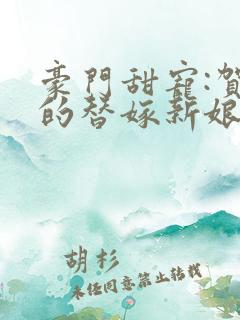 豪門甜寵:賀
的替嫁新娘
胡杉
未经同意禁止转载